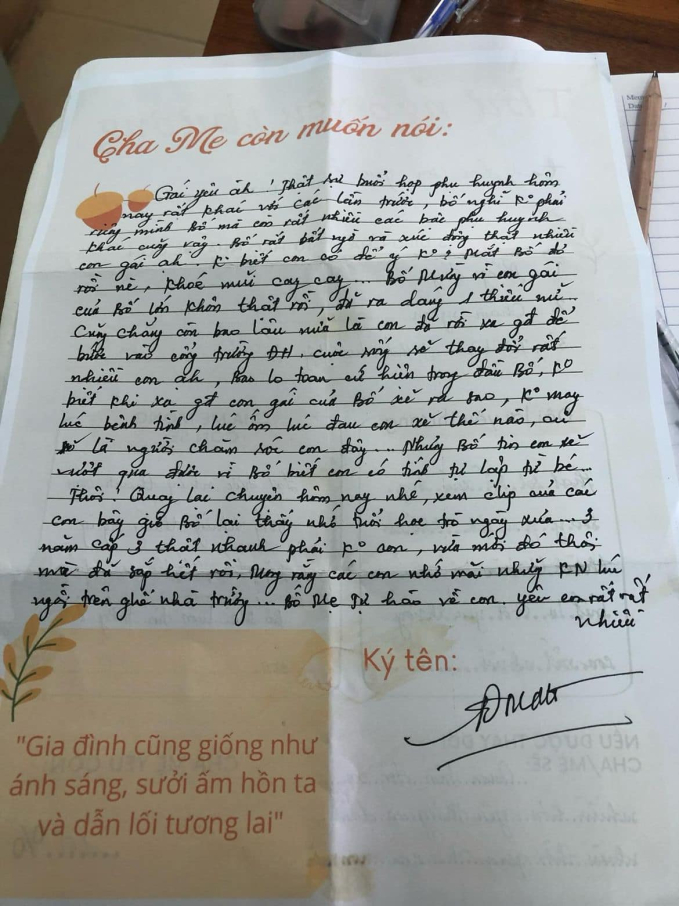 Cha Mẹ còn muốn nói:
Gái yêu àh! Thật sự buổi họp phụ huynh hôm
nay rất khác với các lần trước, bố nghĩ K° phải
riêng mình Bố mà còn rất nhiều các bác phụ huynh
khác cũng vậy. Bố rất bất ngờ và xúc động thật nhiều
con gái ah. K° biết con có để ý K°? Mắt Bố đỏ
rồi nè, khoé mũi cay cay... Bố Mừng vì con gái
của Bố lớn khôn thật rồi, đã ra dáng 1 thiếu nữ.
Cũng chẳng còn bao lâu nữa là con đã rời xa gđ để
bước vào cổng trường ĐH. cuộc sống sẽ thay đổi rất
nhiều con àh, Bao lo toan cứ hiện trong đầu Bố, K°
biết khi xa gđ con gái của Bố xẽ ra sao, K° may
lúc bệnh tình, lúc ốm lúc đau con xẽ thế nào, ai
sẽ là người chăm sóc con đây... Nhưng Bố tin con xẽ
vượt qua được vì Bố biết con có tính tự lập từ bé...
Thôi! Quay lại chuyện hôm nay nhé, xem clip của các
con bây giờ Bố lại thấy nhớ thời học trò ngày xưa... 3
năm cấp 3 thật nhanh phải K° con, vừa mới đó thôi
mà đã sắp hết rồi, Mong rằng các con nhớ mãi những KN lúc
ngồi trên ghế nhà trường... Bố Mẹ Tự hào về con. yêu con rất rất
nhiều
Ký tên:
"Gia đình cũng giống như
ánh sáng, sưởi ấm hồn ta
và dẫn lối tương lai"
NẾU ĐƯỢC THAY ĐỔI
CHA/MẸ SẼ